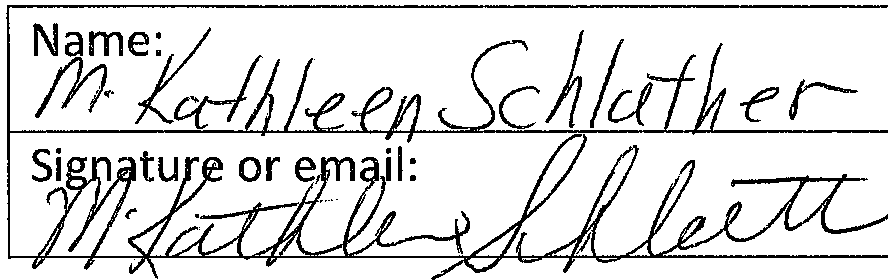 Name:
M. Kathleen Schlather
Signature or email:
M. Kathleen